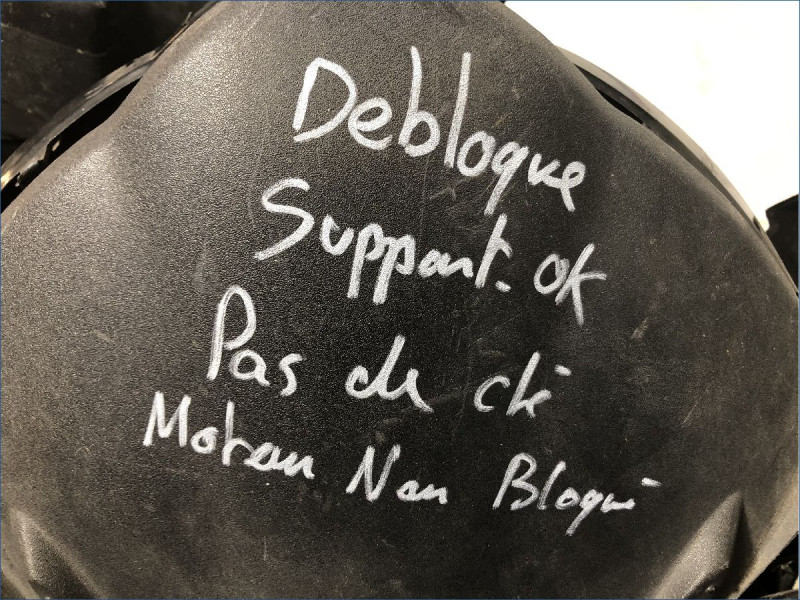 Debloque
Support. ok
Pas de clé
Moteur Non Bloqué